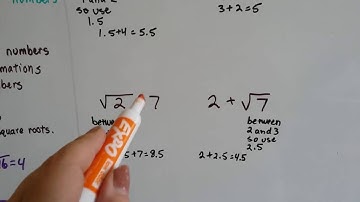 numbers
so use
1.5
1.5+4=5.5
3+2=5
numbers
quare roots.
=4
√2 7
2 + √7
between
between
2 and 3
so use
2.5
5+7=8.5
2+2.5=4.5
EXPO